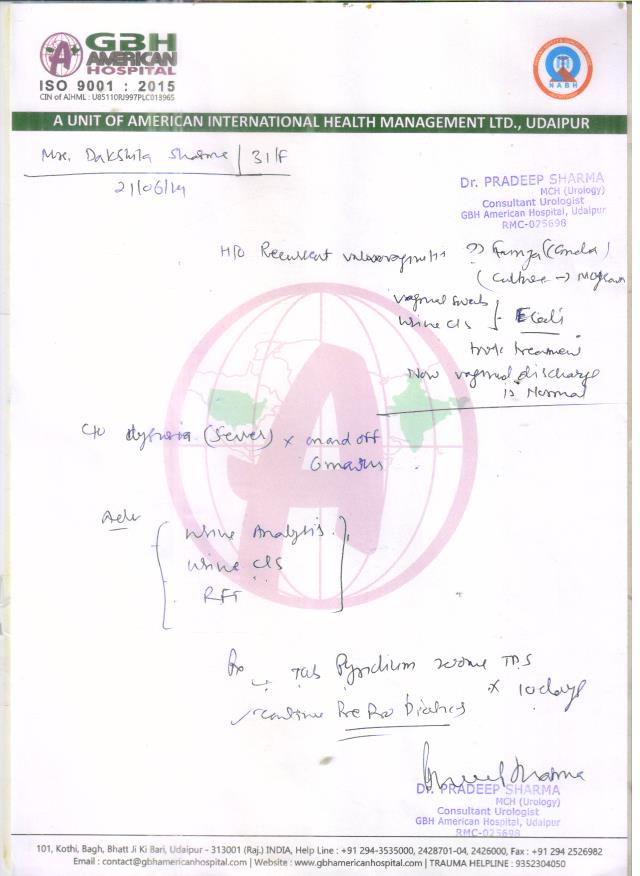 GBH
AMERICAN
HOSPITAL
ISO 9001 : 2015
CIN of AIHML : U85110RJ1997PLC013965
NABH
A UNIT OF AMERICAN INTERNATIONAL HEALTH MANAGEMENT LTD., UDAIPUR
Mrs. Dakshita Sharma / 31/F
21/06/19
Dr. PRADEEP SHARMA
MCH (Urology)
Consultant Urologist
GBH American Hospital, Udaipur
RMC-025698
H/O Recurrent vulvovaginitis
(Culture →
vaginal swab
urine C/S E.Coli
took treatment
Now vaginal discharge
is Normal
C/O dysuria (Sever) x on and off
Adv
Urine Analysis
Urine C/S
RFT
Rx Tab Pyridium 200mg TDS
x 10 days
continue Pre Pro Biotics
Dr. PRADEEP SHARMA
MCH (Urology)
Consultant Urologist
GBH American Hospital, Udaipur
RMC-025698
101, Kothi, Bagh, Bhatt Ji Ki Bari, Udaipur - 313001 (Raj.) INDIA, Help Line : +91 294-3535000, 2428701-04, 2426000, Fax : +91 294 2526982
Email : contact@gbhamericanhospital.com | Website : www.gbhamericanhospital.com | TRAUMA HELPLINE : 9352304050